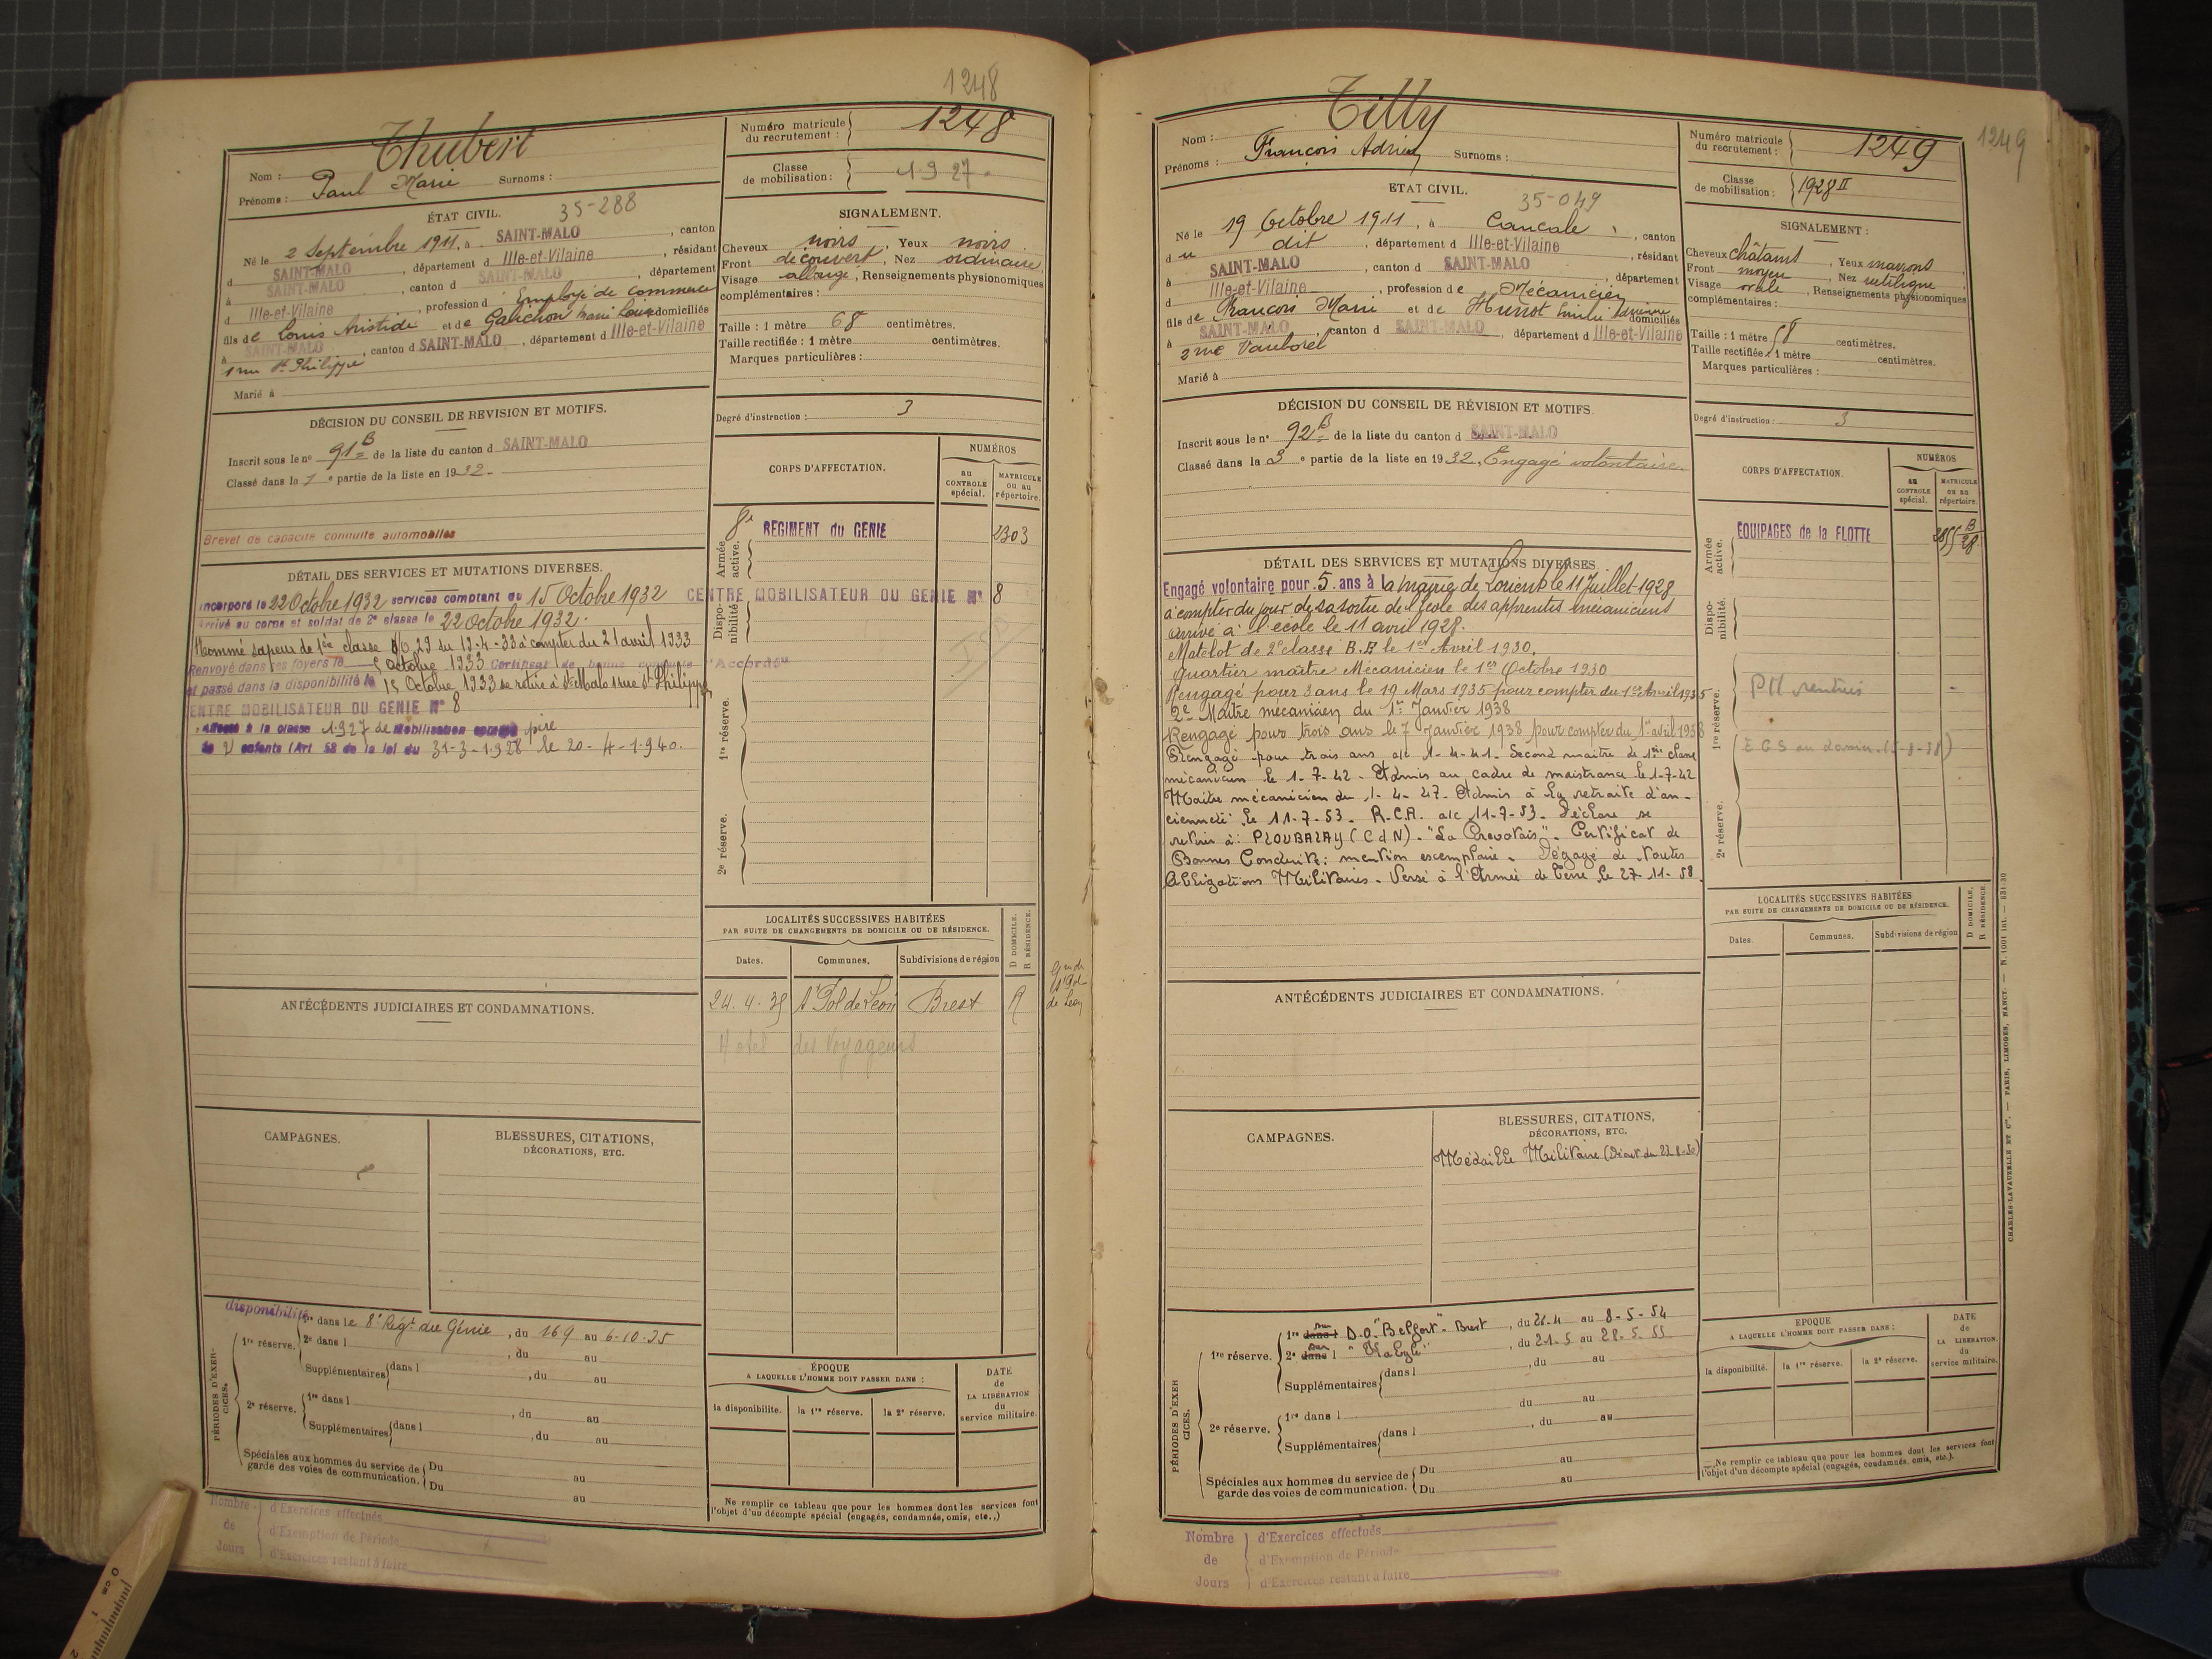 1248
Thubert
Nom :
Prénoms : Paul Marie Surnoms :
Numéro matricule du recrutement : 1248
Classe de mobilisation : 1927.
ÉTAT CIVIL. 35-288
Né le 2 Septembre 1911, à SAINT-MALO, canton
d SAINT-MALO, département d Ille-et-Vilaine, résidant
à SAINT-MALO, canton d SAINT-MALO, département
d Ille-et-Vilaine, profession d' Employé de commerce
fils de Louis Aristide et de Gauchon Marie Louise domiciliés
à SAINT-MALO, canton d SAINT-MALO, département d Ille-et-Vilaine
1 rue St Philippe
Marié à
SIGNALEMENT.
Cheveux noirs, Yeux noirs.
Front découvert, Nez ordinaire,
Visage allongé, Renseignements physionomiques
complémentaires :
Taille : 1 mètre 68 centimètres.
Taille rectifiée : 1 mètre centimètres.
Marques particulières :
Degré d'instruction : 3
DÉCISION DU CONSEIL DE REVISION ET MOTIFS.
Inscrit sous le n° 91 B de la liste du canton d SAINT-MALO
Classé dans la 1e partie de la liste en 1932.
Brevet de capacité conduite automobiles
CORPS D'AFFECTATION.
NUMÉROS
au CONTROLE spécial.
MATRICULE ou au répertoire.
Armée active.
8e REGIMENT du GENIE 2303
Disponibilité
CENTRE MOBILISATEUR DU GENIE N° 8
1re réserve.
2e réserve.
DÉTAIL DES SERVICES ET MUTATIONS DIVERSES.
Incorporé le 22 Octobre 1932 services comptant du 15 Octobre 1932
Arrivé au corps et soldat de 2e classe le 22 octobre 1932.
Nommé sapeur de 1ère classe 29 du 19-4-33 à compter du 21 avril 1933
Renvoyé dans ses foyers le Octobre 1933 Certificat de bonne conduite "Accordé"
et passé dans la disponibilité le 15 Octobre 1933 se retire à St Malo 1 rue St Philippe
CENTRE MOBILISATEUR DU GENIE N° 8
Affecté à la classe 1927 de Mobilisation comme père
de 2 enfants (Art 58 de la loi du 31-3-1928 le 20-4-1940.
ANTÉCÉDENTS JUDICIAIRES ET CONDAMNATIONS.
LOCALITÉS SUCCESSIVES HABITÉES
PAR SUITE DE CHANGEMENTS DE DOMICILE OU DE RÉSIDENCE.
Dates. Communes. Subdivisions de région
D DOMICILE.
R RÉSIDENCE.
24.4.35 St Pol de Léon Brest R
Hotel des Voyageurs
CAMPAGNES.
BLESSURES, CITATIONS,
DÉCORATIONS, ETC.
PÉRIODES D'EXERCICES.
disponibilité
1re réserve. 1re dans le 8e Régt du Génie, du 16 9 au 6-10-35
2e dans l , du au
Supplémentaires dans l , du au
2e réserve. 1re dans l , du au
Supplémentaires dans l , du au
Spéciales aux hommes du service de garde des voies de communication. Du au
Du au
ÉPOQUE
A LAQUELLE L'HOMME DOIT PASSER DANS :
la disponibilité. la 1re réserve. la 2e réserve.
DATE de LA LIBÉRATION du service militaire.
Ne remplir ce tableau que pour les hommes dont les services font
l'objet d'un décompte spécial (engagés, condamnés, omis, etc.,)
Nombre de Jours
d'Exercices effectués
d'Exemption de Période
d'Exercices restant à faire
1249
Tilly
Nom :
Prénoms : François Adrien Surnoms :
Numéro matricule du recrutement : 1249
Classe de mobilisation : 1928 II
ETAT CIVIL. 35-049
Né le 19 Octobre 1911, à Cancale, canton
du dit, département d Ille-et-Vilaine, résidant
à SAINT-MALO, canton d SAINT-MALO, département
d Ille-et-Vilaine, profession de Mécanicien
fils de François Marie et de Hunot domiciliés
à SAINT-MALO, canton d SAINT-MALO, département d Ille-et-Vilaine
2 rue Vauborel
Marié à
SIGNALEMENT :
Cheveux châtains, Yeux marrons
Front moyen, Nez rectiligne
Visage ovale, Renseignements physionomiques
complémentaires :
Taille : 1 mètre 58 centimètres.
Taille rectifiée : 1 mètre centimètres.
Marques particulières :
Degré d'instruction : 3
DÉCISION DU CONSEIL DE RÉVISION ET MOTIFS.
Inscrit sous le n° 92 B de la liste du canton d SAINT-MALO
Classé dans la 3e partie de la liste en 1932. Engagé volontaire
CORPS D'AFFECTATION.
NUMÉROS
au CONTROLE spécial.
MATRICULE ou au répertoire.
Armée active.
EQUIPAGES de la FLOTTE 2855 B 28
Disponibilité.
1re réserve.
2e réserve.
DÉTAIL DES SERVICES ET MUTATIONS DIVERSES.
Engagé volontaire pour 5 ans à la mairie de Lorient le 11 Juillet 1928
à compter du jour de sa sortie de l'école des apprentis mécaniciens
arrivé à l'école le 11 avril 1928.
Matelot de 2e classe B.E le 1er Avril 1930.
Quartier maître Mécanicien le 1er Octobre 1930
Rengagé pour 3 ans le 19 Mars 1935 pour compter du 1er Avril 1935
2e Maître mécanicien du 1er Janvier 1938
Rengagé pour trois ans le 7 Janvier 1938 pour compter du 1er avril 1938
Rengagé pour trois ans a/c 1-4-41. Second maitre de 1ère classe
mécanicien le 1-7-42. Admis au cadre de maistrance le 1-7-42
Maitre mécanicien du 1-4-47. Admis à la retraite d'an-
cienneté le 11-7-53. R.C.A. a/c 11-7-53. Déclare se
retirer à : PLOUBALAY (C d N). "La Crevotais". Certificat de
Bonne Conduite : mention exemplaire. Dégagé de toutes
Obligations Militaires. Versé à l'Armée de Terre le 27-11-58.
ANTÉCÉDENTS JUDICIAIRES ET CONDAMNATIONS.
LOCALITÉS SUCCESSIVES HABITÉES
PAR SUITE DE CHANGEMENTS DE DOMICILE OU DE RÉSIDENCE.
Dates. Communes. Subdivisions de région
D DOMICILE.
R RÉSIDENCE.
CAMPAGNES.
BLESSURES, CITATIONS,
DÉCORATIONS, ETC.
Médaille Militaire
PÉRIODES D'EXERCICES.
1re réserve. 1re dans l sur D.O. "Belfort" - Brest, du 21-4 au 8-5-54
2e dans l sur "Kabyle", du 21-5 au 28-5-55
Supplémentaires dans l , du au
2e réserve. 1re dans l du au
Supplémentaires dans l , du au
Spéciales aux hommes du service de garde des voies de communication. Du au
Du au
EPOQUE
A LAQUELLE L'HOMME DOIT PASSER DANS :
la disponibilité. la 1re réserve. la 2e réserve.
DATE de LA LIBERATION. du service militaire.
Ne remplir ce tableau que pour les hommes dont les services font
l'objet d'un décompte spécial (engagés, condamnés, omis, etc.).
Nombre de Jours
d'Exercices effectués
d'Exemption de Période
d'Exercices restant à faire
CHARLES-LAVAUZELLE ET Cie. — PARIS, LIMOGES, NANCY. —
0 cm 1 2